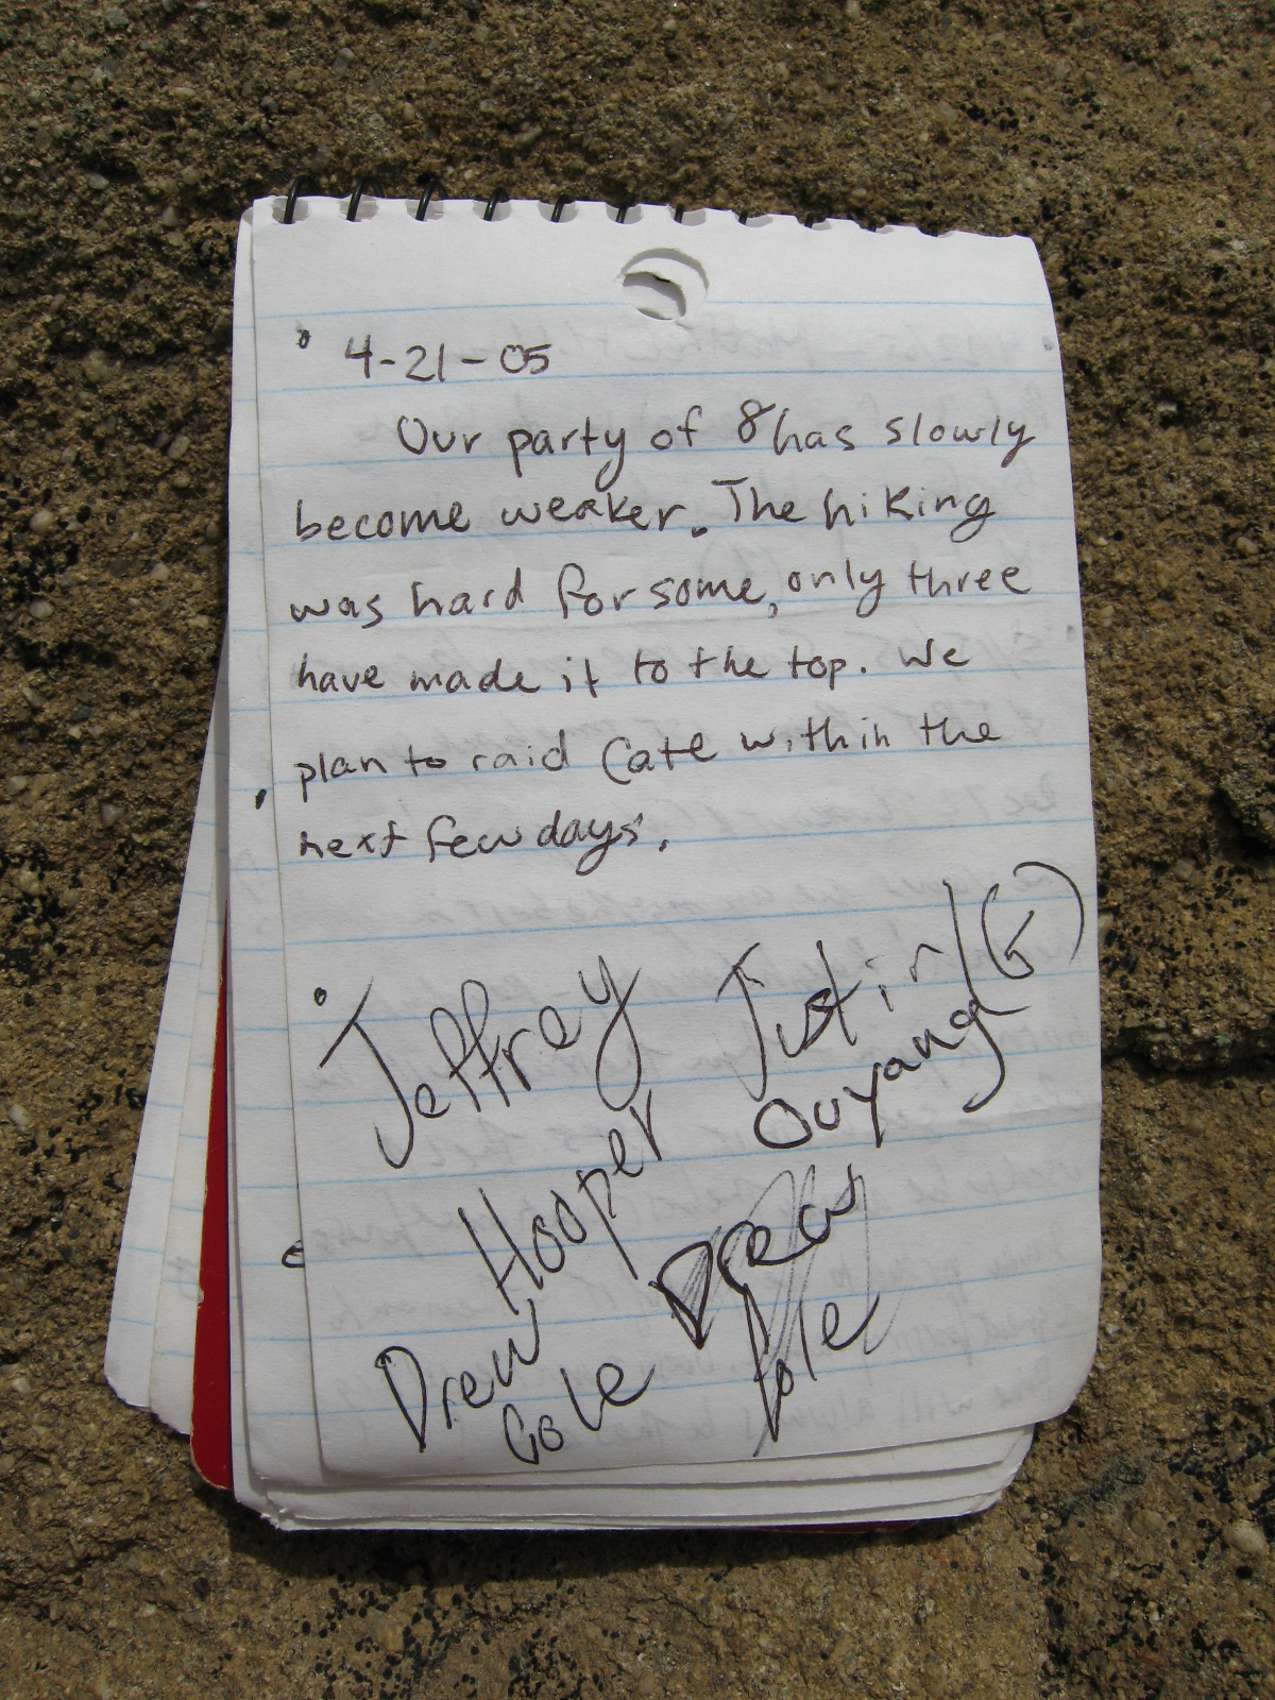 4-21-05
Our party of 8 has slowly
become weaker. The hiking
was hard for some, only three
have made it to the top. We
plan to raid Cate within the
next few days.
Jeffrey
Hooper
Justin (G)
Ouyang
Drew
Cole
Drew
Cole